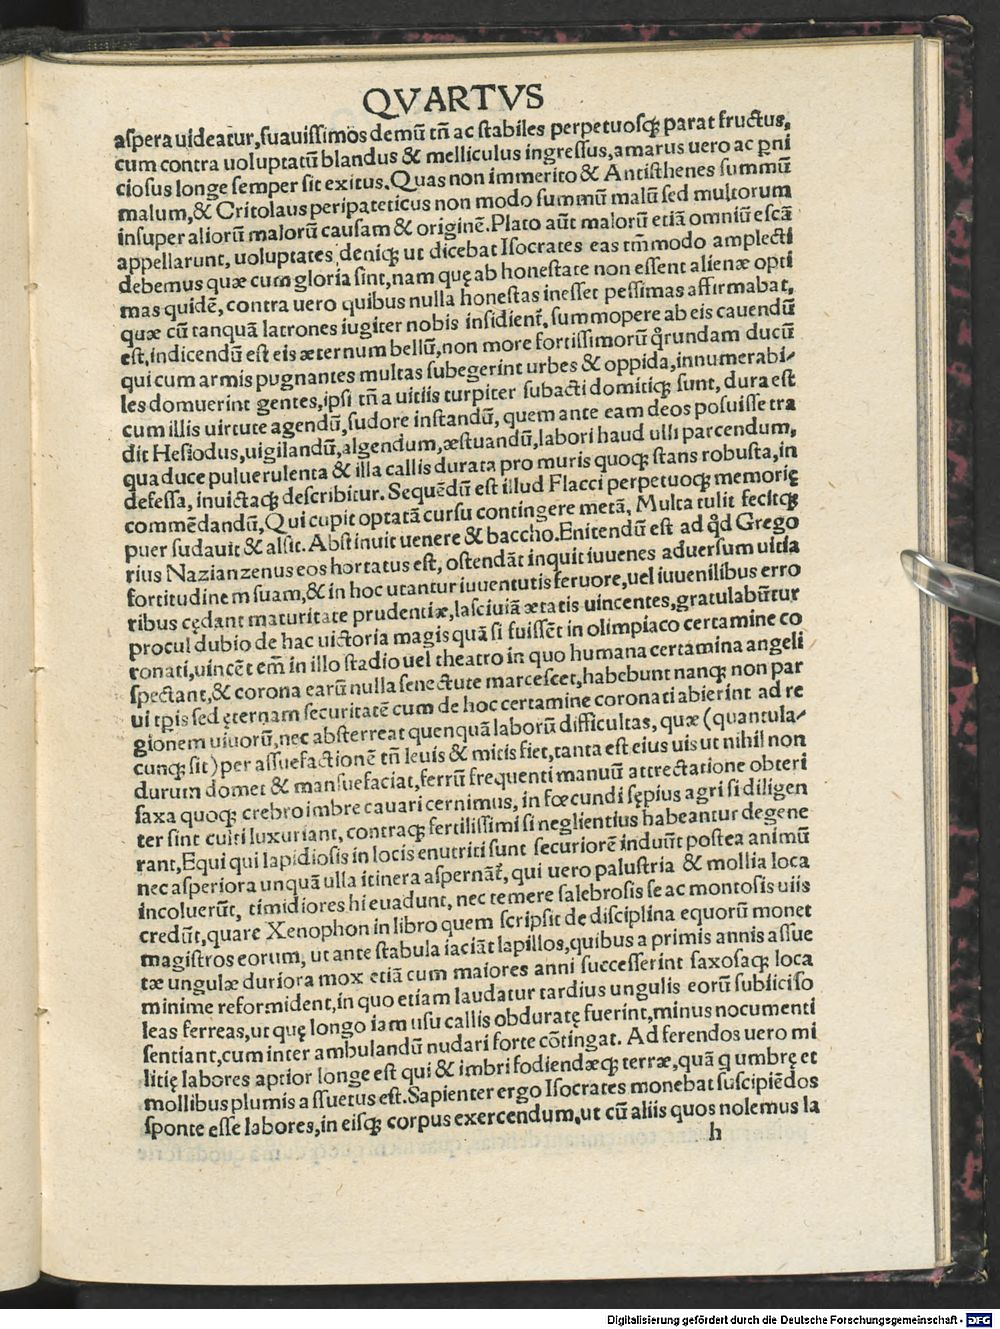 QVARTVS
aſpera uideatur,ſuauiſſimos demũ tñ ac ſtabiles perpetuoſq; parat fructus,
cum contra uoluptatũ blandus & melliculus ingreſſus,amarus uero ac ꝑni
cioſus longe ſemper ſit exitus.Quas non immerito & Antiſthenes ſummũ
malum,& Critolaus peripateticus non modo ſummũ malũ ſed multorum
inſuper aliorũ malorũ cauſam & originẽ.Plato aũt malorũ etiã omniũ eſcã
appellarunt, uoluptates deniq; ut dicebat Iſocrates eas tm̃modo amplecti
debemus quæ cum gloria ſint,nam quę ab honeſtate non eſſent alienæ opti
mas quidẽ, contra uero quibus nulla honeſtas ineſſet peſſimas affirmabat,
quæ cũ tanquã latrones iugiter nobis inſidient᷑, ſummopere ab eis cauendũ
eſt,indicendũ eſt eis æternum bellũ,non more fortiſſimorũ q̊rundam ducũ
qui cum armis pugnantes multas ſubegerint urbes & oppida,innumerabi⸗
les domuerint gentes,ipſi tñ a uitiis turpiter ſubacti domitiq; ſunt, dura eſt
cum illis uirtute agendũ,ſudore inſtandũ, quem ante eam deos poſuiſſe tra
dit Heſiodus,uigilandũ,algendum,æſtuandũ,labori haud ulli parcendum,
qua duce puluerulenta & illa callis durata pro muris quoq; ſtans robuſta,in
defeſſa, inuictaq; deſcribitur. Sequẽdũ eſt illud Flacci perpetuoq; memorię
commẽdandũ,Qui cupit optatã curſu contingere metã, Multa tulit fecitq;
puer ſudauit & alſit. Abſtinuit uenere & baccho.Enitendũ eſt ad q̊d Grego
rius Nazianzenus eos hortatus eſt, oſtendãt inquit iuuenes aduerſum uitia
fortitudinem ſuam,& in hoc utantur iuuentutis feruore,uel iuuenilibus erro
ribus cędant maturitate prudentiæ,laſciuiã ætatis uincentes,gratulabũtur
procul dubio de hac uictoria magis quã ſi fuiſſẽt in olimpiaco certamine co
ronati,uincẽt em̃ in illo ſtadio uel theatro in quo humana certamina angeli
ſpectant,& corona earũ nulla ſenectute marceſcet,habebunt nanq; non par
ui tꝑis ſed ęternam ſecuritatẽ cum de hoc certamine coronati abierint ad re
gionem uiuorũ,nec abſterreat quenquã laborũ difficultas, quæ (quantula⸗
cunq; ſit) per aſſuefactionẽ tñ leuis & mitis fiet,tanta eſt eius uis ut nihil non
durum domet & manſuefaciat,ferrũ frequenti manuũ attrectatione obteri
ſaxa quoq; crebro imbre cauari cernimus, in fœcundi ſępius agri ſi diligen
ter ſint culti luxuriant, contraq; fertiliſſimi ſi neglientius habeantur degene
rant,Equi qui lapidioſis in locis enutriti ſunt ſecuriorẽ induũt poſtea animũ
nec aſperiora unquã ulla itinera aſpernãt᷑, qui uero paluſtria & mollia loca
incoluerũt, timidiores hi euadunt, nec temere ſalebroſis ſe ac montoſis uiis
credũt,quare Xenophon in libro quem ſcripſit de diſciplina equorũ monet
magiſtros eorum, ut ante ſtabula iaciãt lapillos,quibus a primis annis aſſue
tæ ungulæ duriora mox etiã cum maiores anni ſucceſſerint ſaxoſaq; loca
minime reformident,in quo etiam laudatur tardius ungulis eorũ ſubiiciſo
leas ferreas,ut quę longo iam uſu callis obduratę fuerint,minus nocumenti
ſentiant,cum inter ambulandũ nudari forte cõtingat. Ad ferendos uero mi
litię labores aptior longe eſt qui & imbri fodiendæq; terræ,quã q umbrę et
mollibus plumis aſſuetus eſt.Sapienter ergo Iſocrates monebat ſuſcipiẽdos
ſponte eſſe labores,in eiſq; corpus exercendum,ut cũ aliis quos nolemus la
h
Digitalisierung gefördert durch die Deutsche Forschungsgemeinschaft - DFG